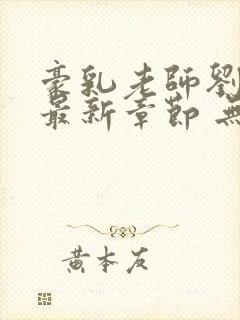 豪乳老師劉
最新章節 無
黃本友